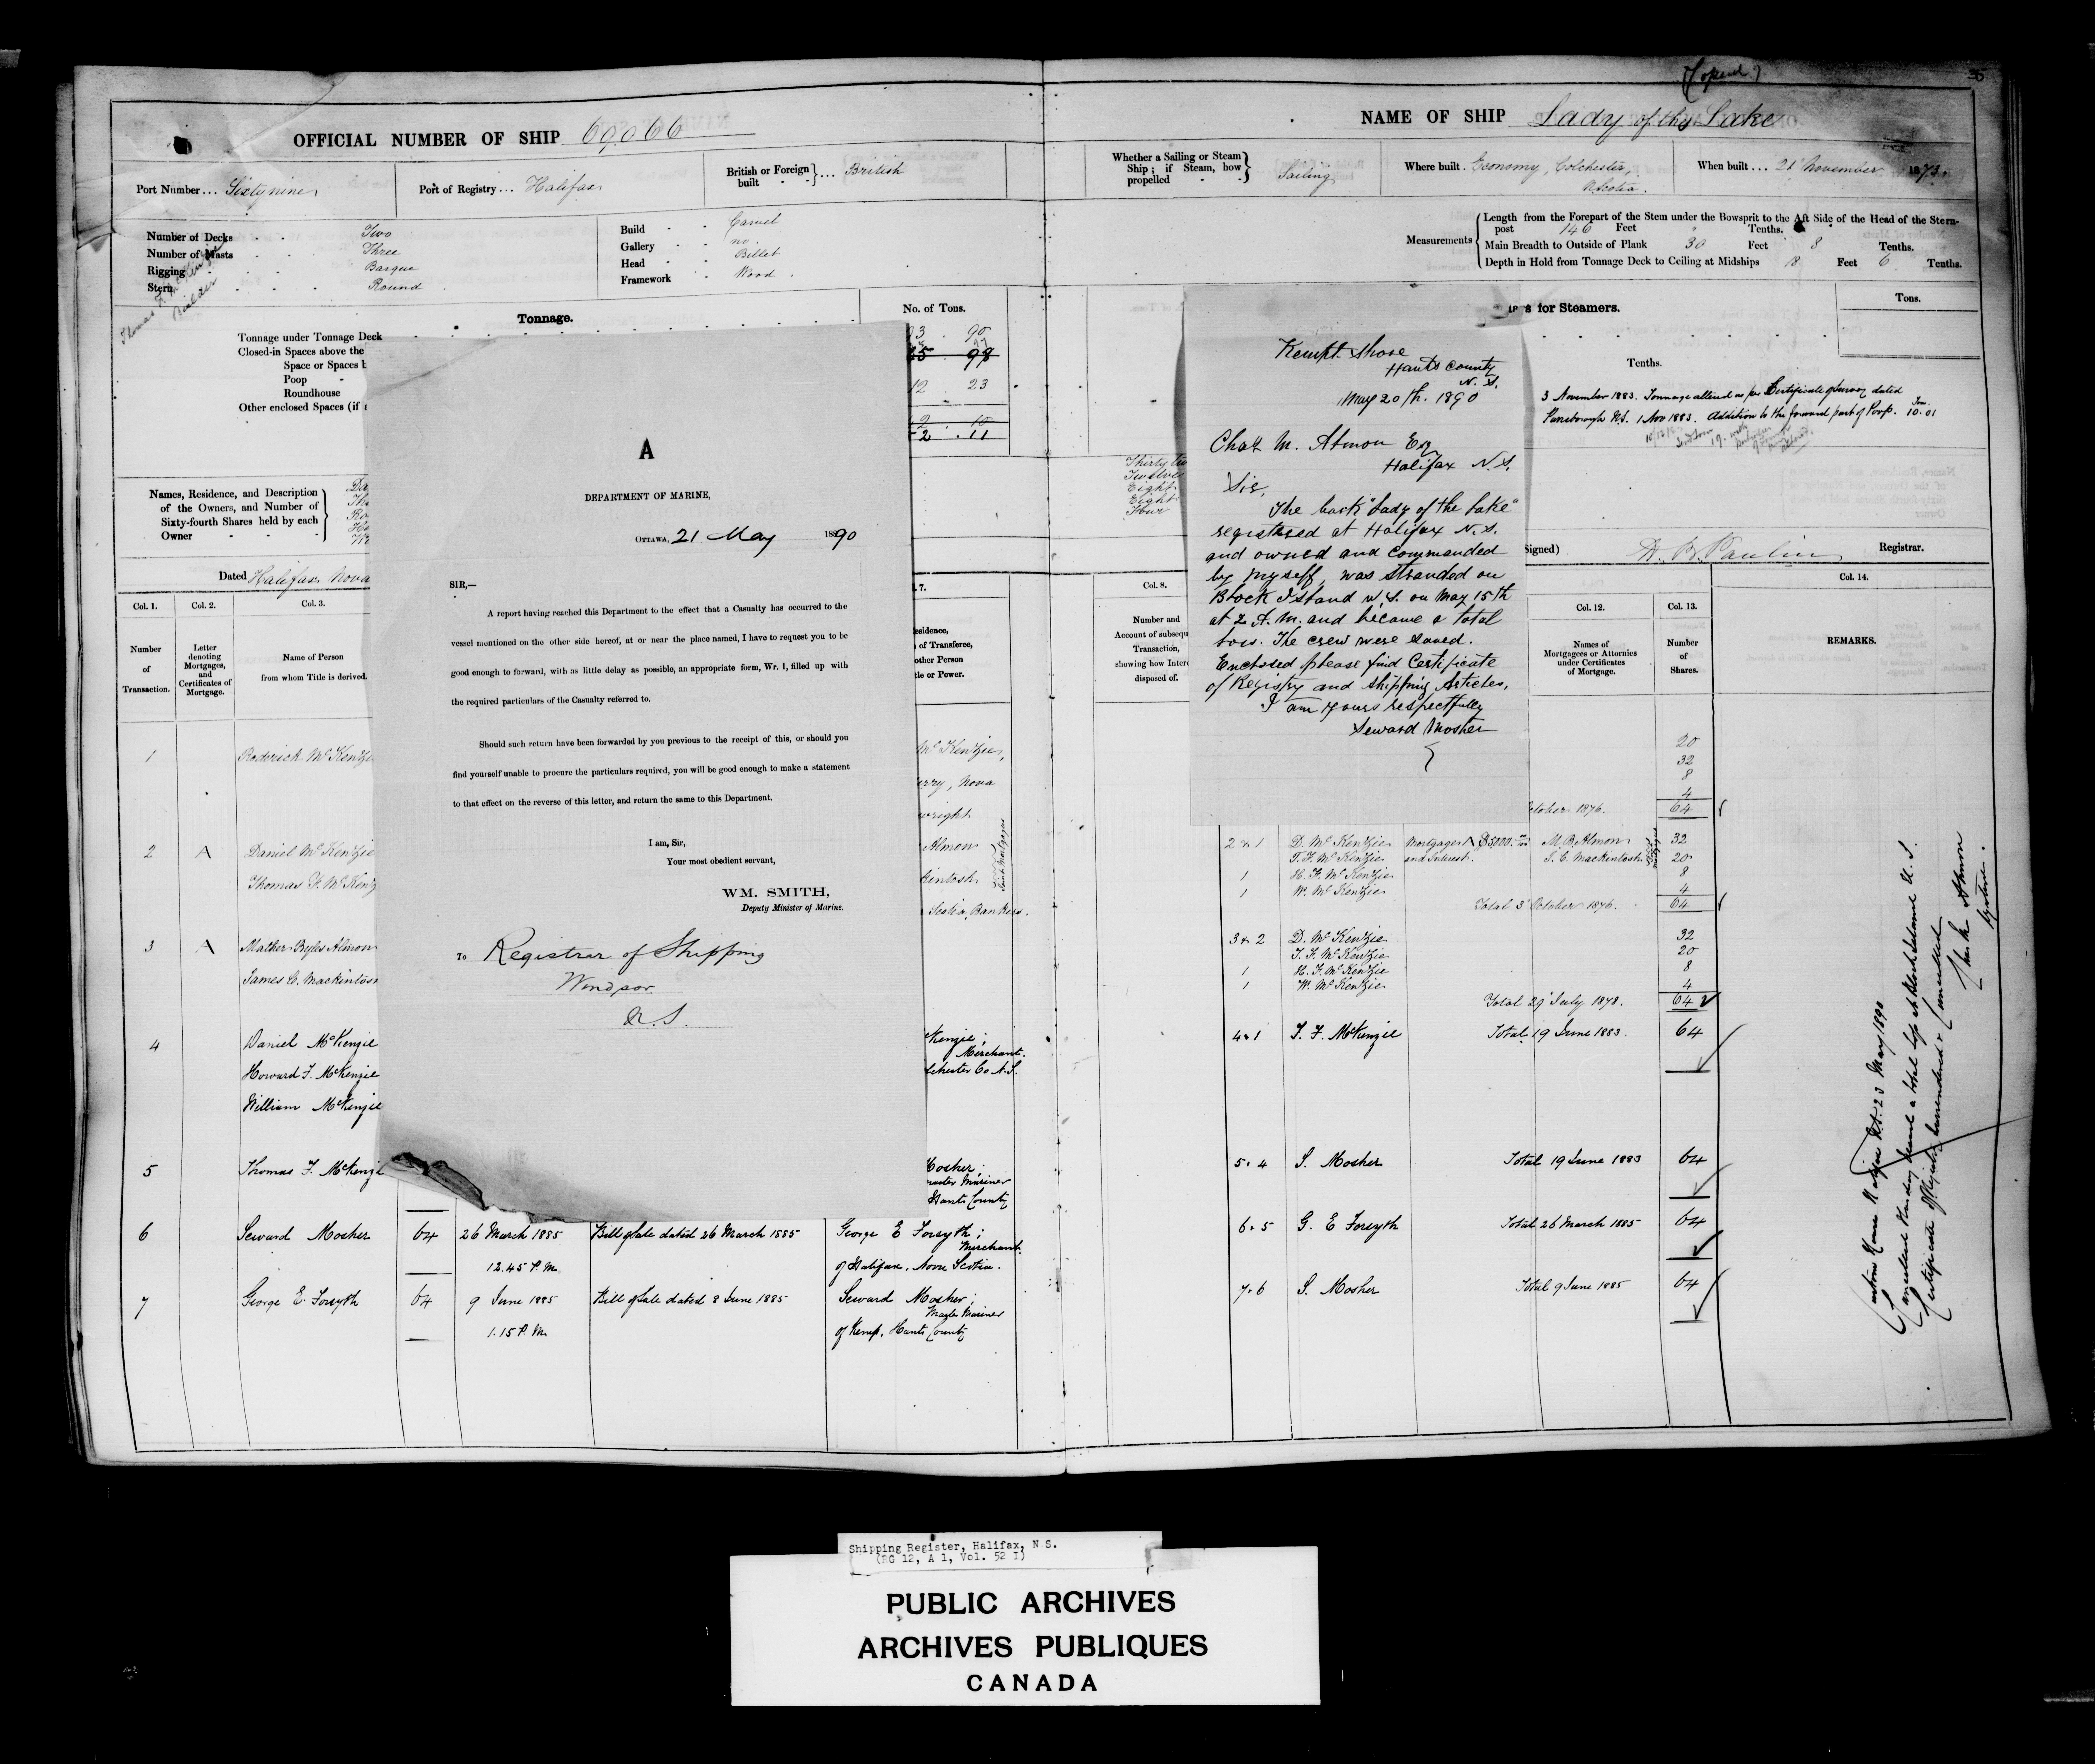 (Copied)
35
OFFICIAL NUMBER OF SHIP 69,066
NAME OF SHIP Lady of the Lake
Port Number... Sixty nine
Port of Registry... Halifax
British or Foreign built ... British
Whether a Sailing or Steam Ship; if Steam, how propelled Sailing
Where built. Economy, Colchester, N. Scotia.
When built... 21 November 1873.
Number of Decks Two
Number of Masts Three
Rigging Barque
Stern Round
Build Carvel
Gallery no.
Head Billet
Framework Wood.
Builder
Measurements
Length from the Forepart of the Stem under the Bowsprit to the Aft Side of the Head of the Stern-
post 146 Feet " Tenths.
Main Breadth to Outside of Plank 30 Feet 8 Tenths.
Depth in Hold from Tonnage Deck to Ceiling at Midships 18 Feet 6 Tenths.
Tonnage.
No. of Tons.
Tonnage under Tonnage Deck
Closed-in Spaces above the
Space or Spaces b
Poop
Roundhouse
Other enclosed Spaces (if
03 . 90
12 . 23
2 . 11
s for Steamers.
Tons.
Tenths.
3 November 1883. Tonnage altered as per Certificate of Survey dated
Parrsborough N.S. 1 Nov 1883. Addition to the forward part of Poop. Ton. 10.01
Names, Residence, and Description
of the Owners, and Number of
Sixty-fourth Shares held by each
Owner
Thirty tw
Twelve
Eight
Eight
Four
Dated Halifax Nova
Signed) Registrar.
Col. 1.
Number of Transaction.
Col. 2.
Letter denoting Mortgages, and Certificates of Mortgage.
Col. 3.
Name of Person from whom Title is derived.
7.
esidence,
of Transferee,
other Person
tle or Power.
Col. 8.
Number and
Account of subsequ
Transaction,
showing how Intere
disposed of.
Col. 12.
Names of Mortgagees or Attornies under Certificates of Mortgage.
Col. 13.
Number of Shares.
Col. 14.
REMARKS.
A
DEPARTMENT OF MARINE,
OTTAWA, 21 May 1890
SIR,—
A report having reached this Department to the effect that a Casualty has occurred to the
vessel mentioned on the other side hereof, at or near the place named, I have to request you to be
good enough to forward, with as little delay as possible, an appropriate form, Wr. 1, filled up with
the required particulars of the Casualty referred to.
Should such return have been forwarded by you previous to the receipt of this, or should you
find yourself unable to procure the particulars required, you will be good enough to make a statement
to that effect on the reverse of this letter, and return the same to this Department.
I am, Sir,
Your most obedient servant,
WM. SMITH,
Deputy Minister of Marine.
To Registrar of Shipping
Windsor
N.S.
Kempt Shore
Hants County
N. S.
May 20th. 1890
Chas M. Almon Esq
Halifax N.S.
Sir,
The bark "Lady of the Lake"
registered at Halifax N.S.
and owned and commanded
by myself, was stranded on
Block Island U.S. on May 15th
at 2 A.M. and became a total
loss. The crew were saved.
Enclosed please find Certificate
of Registry and Shipping Articles.
I am Yours respectfully
Seward Mosher
1 Roderick McKenzie
McKenzie,
erry, Nova
wright
20
32
8
4
October 1876. 64
2 A Daniel McKenzie
Thomas F. McKenz
Almon
kintosh
Joint Mortgagees
Scotia, Bankers.
2 & 1 D. McKenzie Mortgage A $5,000. M. B. Almon 32
T. F. McKenzie and Interest. J. C. Mackintosh 20
1 H. F. McKenzie 8
1 W. McKenzie 4
Total 3 October 1876. 64
3 A Mather Byles Almon
James C. Mackintosh
3 & 2 D. McKenzie 32
T. F. McKenzie 20
1 H. F. McKenzie 8
1 W. McKenzie 4
Total 29 July 1878. 64
4 Daniel McKenzie
Howard F. McKenzie
William McKenzie
Kenzie;
Merchant.
lchester Co N.S.
4 & 1 T. F. McKenzie Total 19 June 1883. 64
5 Thomas F. McKenzie
Mosher;
Master Mariner
Hants County
5. 4 S. Mosher Total 19 June 1883 64
6 Seward Mosher 64 26 March 1885 Bill of Sale dated 26 March 1885 George E Forsyth;
Merchant.
12.45 P.M. of Halifax, Nova Scotia.
6. 5 G. E Forsyth Total 26 March 1885 64
7 George E. Forsyth 64 9 June 1885 Bill of Sale dated 8 June 1885 Seward Mosher;
Master Mariner
1.15 P.M. of Kemp, Hants County
7. 6 S. Mosher Total 9 June 1885 64
Custom House Halifax N.S. 23 May 1890
Cancelled Vessel being became a total loss at Block Island U.S.
Certificate of Registry surrendered & Cancelled
Chas M Almon
Registrar.
Shipping Register, Halifax, N S.
(RG 12, A 1, Vol. 52 I)
PUBLIC ARCHIVES
ARCHIVES PUBLIQUES
CANADA